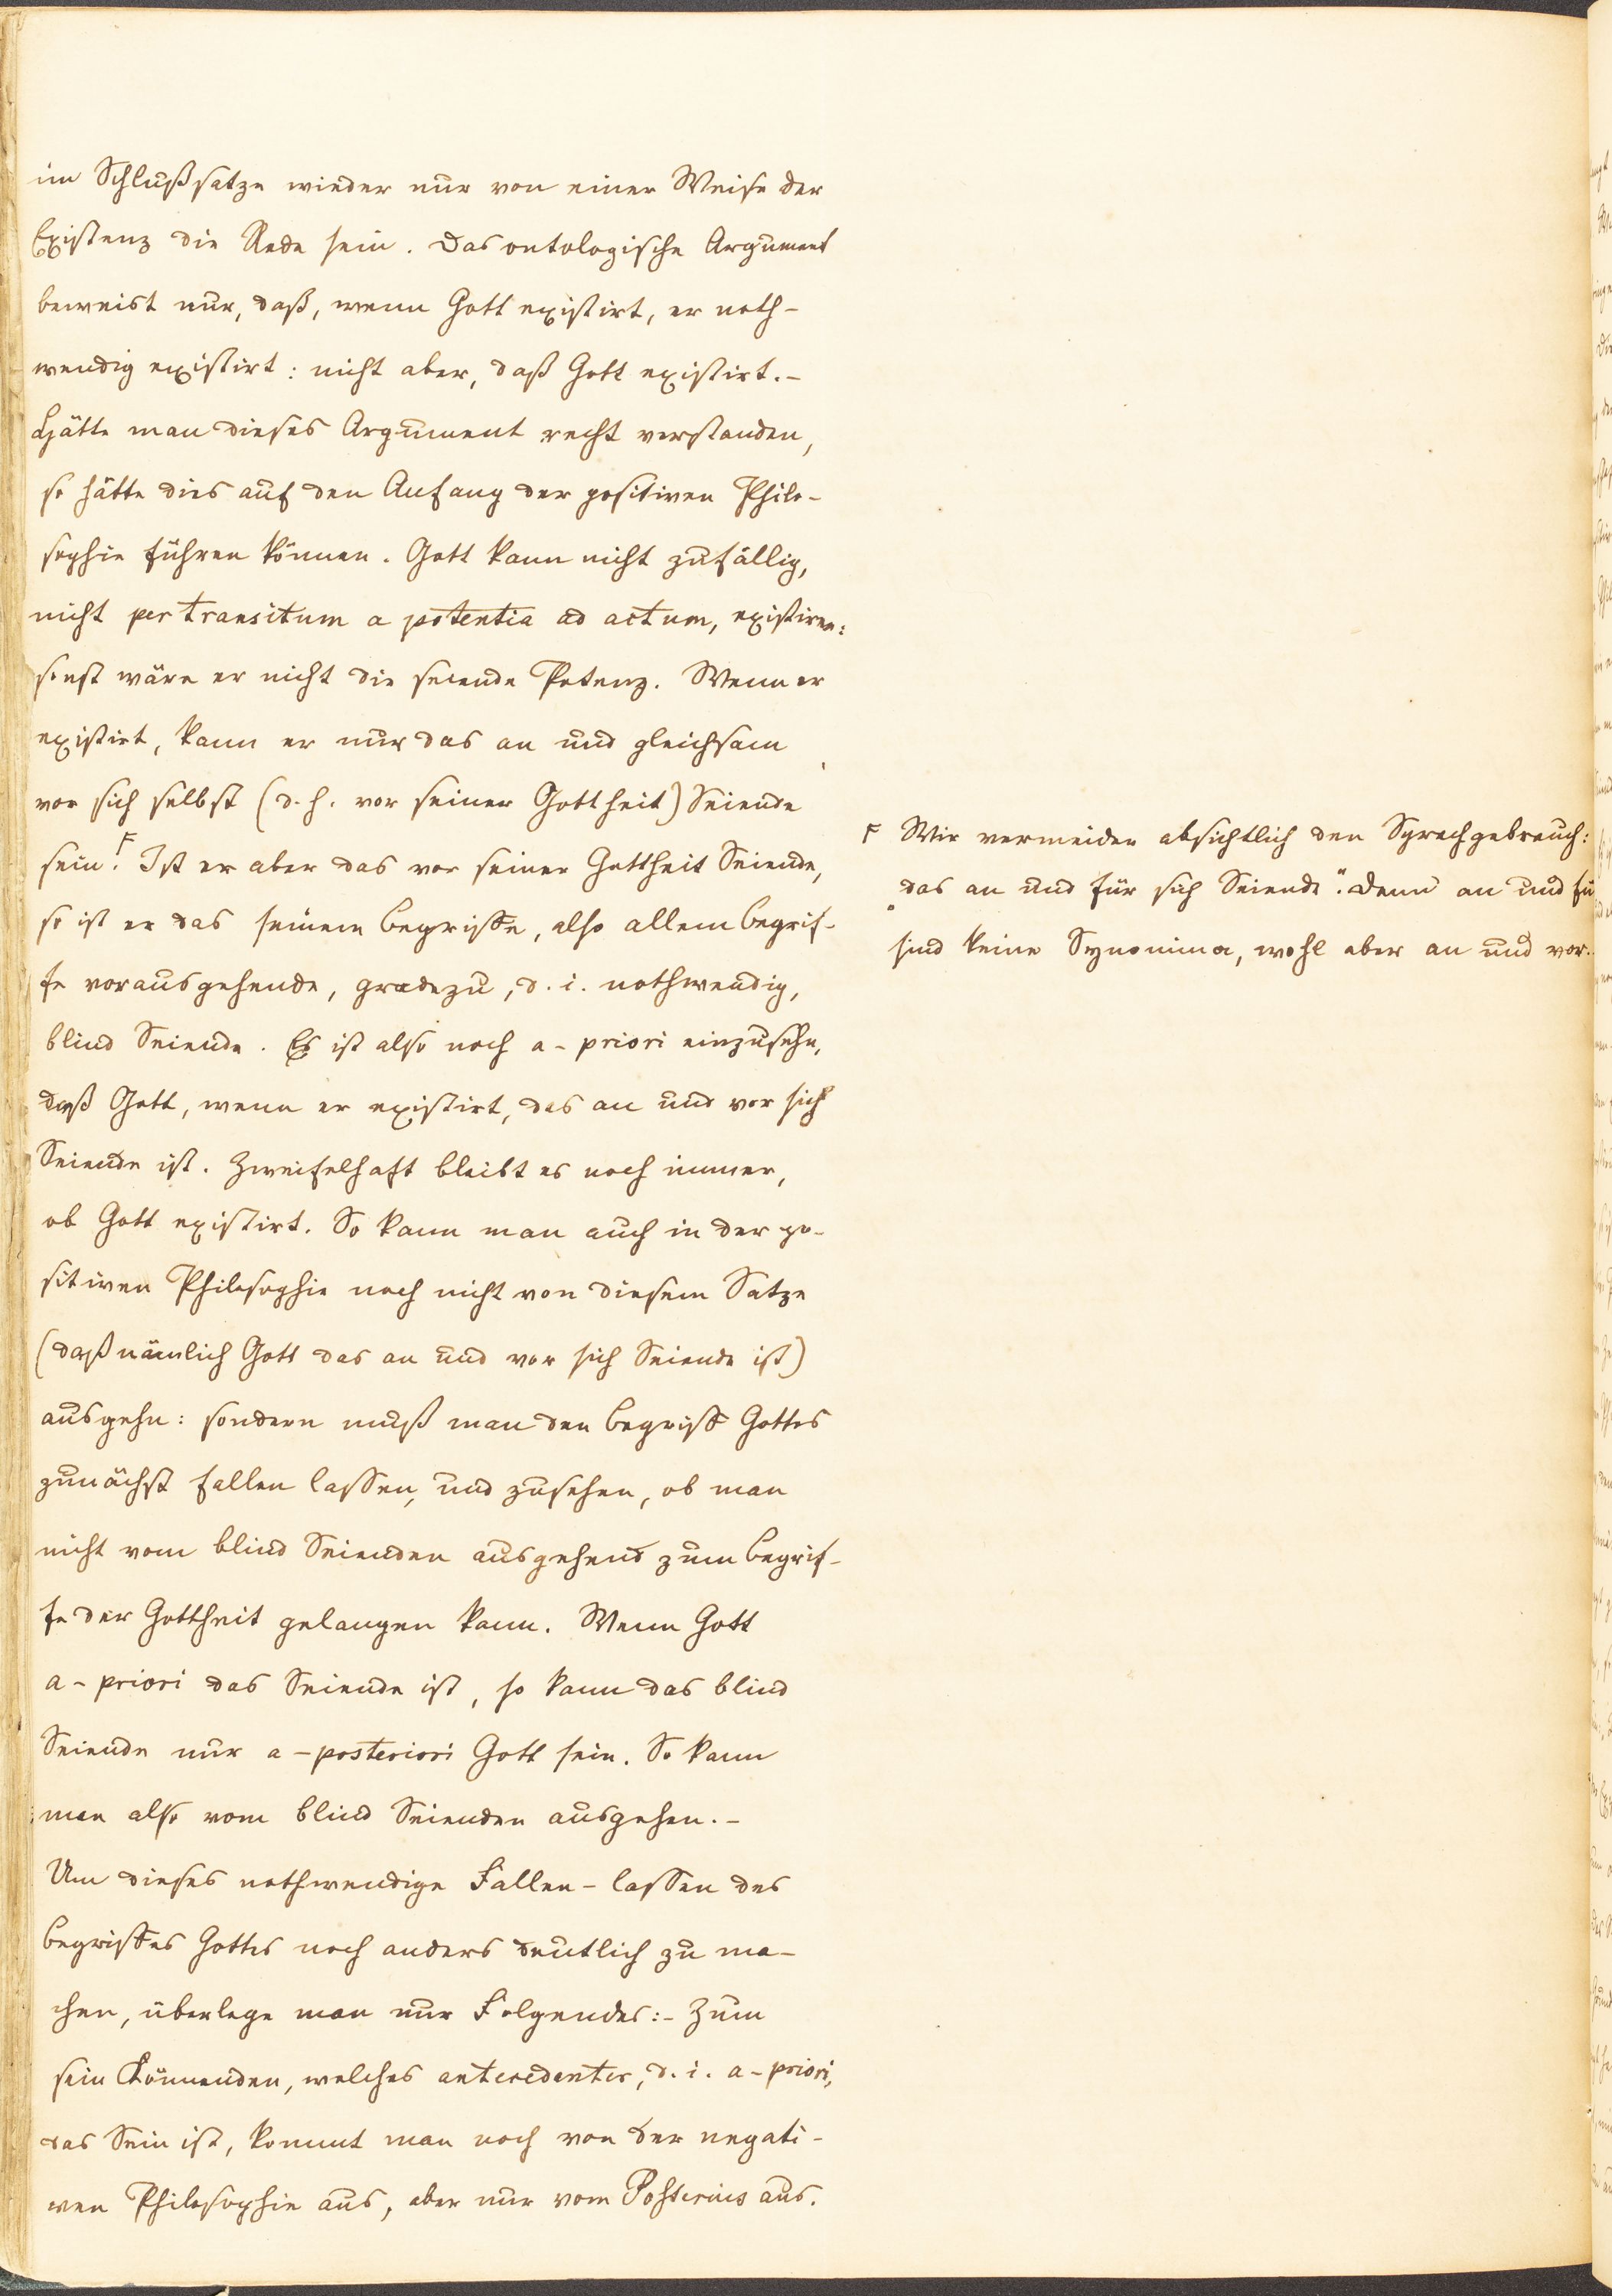 im Schlußsatze wieder nur von einer Weise der
Existenz die Rede sein. Das ontologische Argument
beweist nur, daß, wenn Gott existirt, er noth-
wendig existirt: nicht aber, daß Gott existirt.-
Hätte man dieses Argument recht verstanden,
so hätte dies auf den Anfang der positiven Philo-
sophie führen können. Gott kann nicht zufällig,
nicht per transitum a potentia ad actum, existiren:
sonst wäre er nicht die seiende Potenz. Wenn er
existirt, kann er nur das an und gleichsam
vor sich selbst (d.h. vor seiner Gottheit) Seiende
sein.F Ist er aber das vor seiner Gottheit Seiende,
so ist er das seinem Begriffe, also allem Begrif-
fe vorausgehende, gradezu, d.i. nothwendig,
blind Seiende. Es ist also noch a-priori einzusehn,
daß Gott, wenn er existirt, das an und vor sich
Seiende ist. Zweifelhaft bleibt es noch immer,
ob Gott existirt. So kann man auch in der po-
sitiven Philosophie noch nicht von diesem Satze
(daß nämlich Gott das an und vor sich Seiende ist)
ausgehn: sondern muß man den Begriff Gottes
zunächst fallen lassen, und zusehen, ob man
nicht vom blind Seienden ausgehend zum Begrif-
fe der Gottheit gelangen kann. Wenn Gott
a-priori das Seiende ist, so kann das blind
Seiende nur a-posteriori Gott sein. So kann
man also vom blind Seienden ausgehen.-
Um dieses nothwendige Fallen-lassen des
Begriffes Gottes noch anders deutlich zu ma-
chen, überlege man nur Folgendes:- Zum
sein Könnenden, welches antecedenter, d.i. a-priori,
das Sein ist, kommt man noch von der negati-
ven Philosophie aus, aber nur vom Posterius aus.
F Wir vermeiden absichtlich den Sprachgebrauch:
„das an und für sich Seiende“. Denn an und fü
sind keine Synonima, wohl aber an und vor.